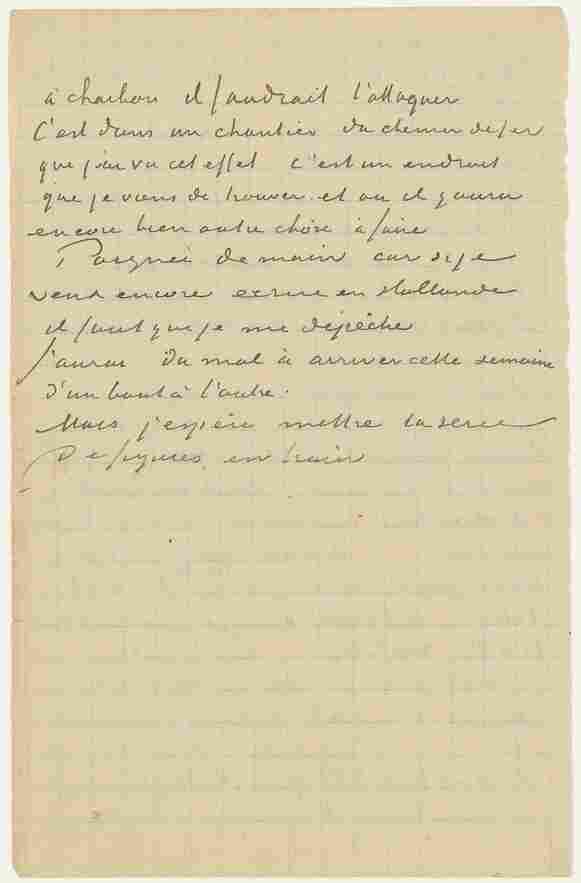 à charbon il faudrait l'attaquer
C'est dans un chantier du chemin de fer
que j'ai vu cet effet c'est un endroit
que je viens de trouver et où il y aura
encore bien autre chose à faire
Poignée de main car si je
veux encore ecrire en Hollande
il faut que je me dépêche
J'aurai du mal à arriver cette semaine
d'un bout à l'autre.
Mais j'espère mettre la serie
De figures en train